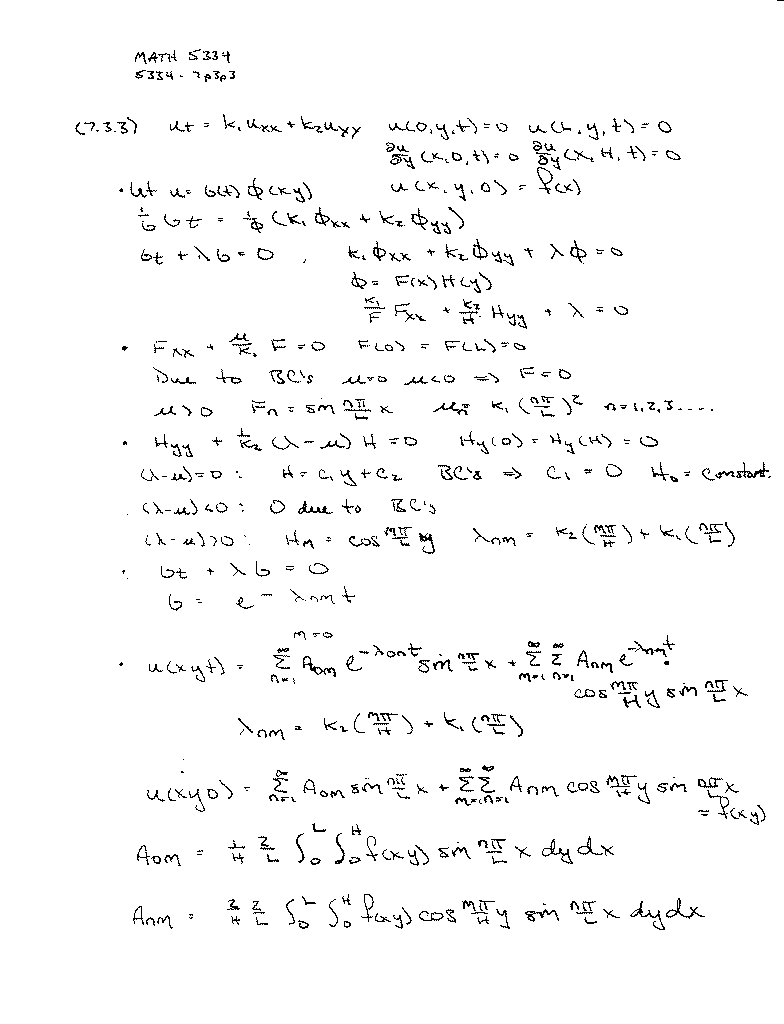 MATH 5334
5334 - 7p3p3
(7.3.3) ut = k₁uxx + k₂uyy u(0,y,t)=0 u(L,y,t)=0
∂u/∂y (x,0,t)=0 ∂u/∂y (x,H,t)=0
• Let u = G(t) φ(xy) u(x,y,0) = f(x)
1/G Gt = 1/φ (k₁ φxx + k₂ φyy)
Gt + λG = 0 , k₁φxx + k₂φyy + λφ = 0
φ = F(x)H(y)
k₁/F Fxx + k₂/H Hyy + λ = 0
• Fxx + μ/k₁ F = 0 F(0) = F(L) = 0
Due to BC's μ=0 μ<0 ⇒ F=0
μ>0 Fn = sin nπ/L x μn = k₁(nπ/L)² n=1,2,3....
• Hyy + 1/k₂ (λ-μ) H = 0 Hy(0) = Hy(H) = 0
(λ-μ)=0 : H = c₁y + c₂ BC's ⇒ c₁ = 0 H₀ = constant.
(λ-μ)<0 : 0 due to BC's
(λ-μ)>0 : Hm = cos mπ/L y λnm = k₂(mπ/H) + k₁(nπ/L)
• Gt + λG = 0
G = e^-λnmt
m=0
• u(xyt) = ∞Σn=1 A₀m e^-λ0nt sin nπ/L x + ∞Σm=1 ∞Σn=1 Anm e^-λnmt .
cos mπ/H y sin nπ/L x
λnm = k₂(mπ/H) + k₁(nπ/L)
u(xy0) = ∞Σn=1 A₀m sin nπ/L x + ∞Σm=1 ∞Σn=1 Anm cos mπ/H y sin nπ/L x
= f(xy)
A₀m = 1/H 2/L ∫₀ᴸ ∫₀ᴴ f(xy) sin nπ/L x dy dx
Anm = 2/H 2/L ∫₀ᴸ ∫₀ᴴ f(xy) cos mπ/H y sin nπ/L x dy dx